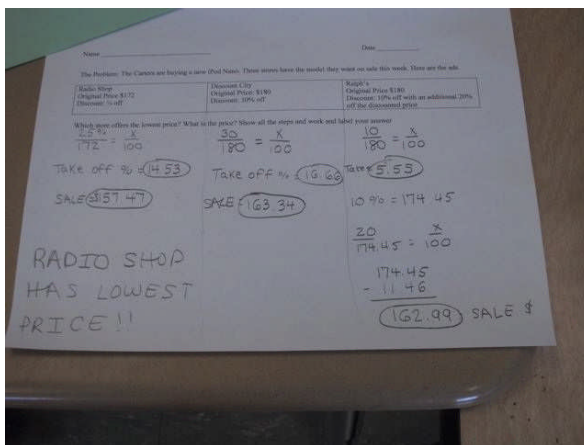 Name
Date
The Problem: The Carters are buying a new iPod Nano. Three stores have the model they want on sale this week. Here are the ads.
Radio Shop
Original Price $172
Discount: ¼ off
Discount City
Original Price: $180
Discount: 30% off
Ralph's
Original Price $180
Discount: 10% off with an additional 20%
off the discounted price
Which store offers the lowest price? What is the price? Show all the steps and work and label your answer
25% / 172 = X / 100
Take off % = 14.53
SALE $157.47
RADIO SHOP
HAS LOWEST
PRICE!!
30 / 180 = X / 100
Take off % = 16.66
SALE = 163.34
10 / 180 = X / 100
Take 5.55
10% = 174.45
20 / 174.45 = X / 100
174.45
- 11 46
162.99 SALE $